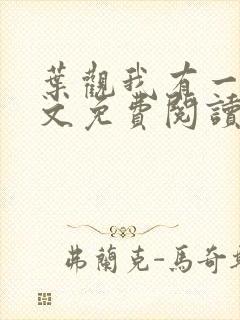 葉觀我有一
文免費閱讀
弗蘭克-馬奇